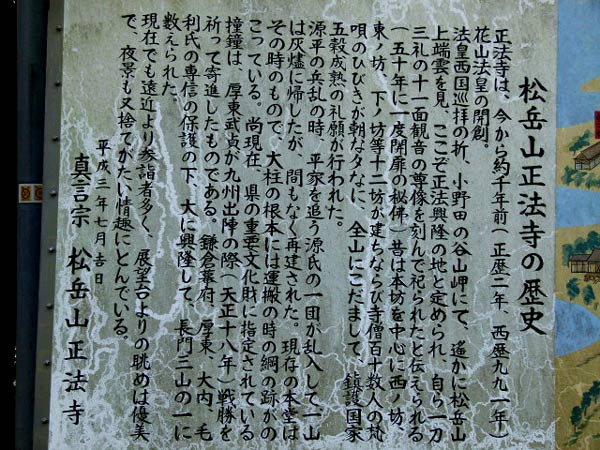 松岳山正法寺の歴史
正法寺は、今から約千年前(正歴二年、西歴九九一年)
花山法皇の開創。
法皇西国巡拝の折、小野田の谷山岬にて、遥かに松岳山
上端雲を見、ここぞ正法興隆の地と定められ、自ら一刀
三礼の十一面観音の尊像を刻んで祀られたと伝えられる
(五十年に一度開扉の秘佛)昔は本坊を中心に西ノ坊、
東ノ坊、下ノ坊等十二坊が建ちならび寺僧百十数人の梵
唄のひびきが朝なタなに、全山にこだまして、鎮護国家
五穀成熟の礼願が行われた。
源平の兵乱の時、平家を追う源氏の一団が乱入して一山
は灰燼に帰したが、間もなく再建された。現存の本堂は
その時のもので、大柱の根本には運搬の時の綱の跡がの
こっている。尚現在、県の重要文化財に指定されている
撞鐘は、厚東武貞が九州出陣の際(天正十八年)戦勝を
祈って寄進したものである。鎌倉幕府、厚東、大内、毛
利氏の専信の保護の下、大に興隆して、長門三山の一に
数えられた。
現在でも遠近より参詣者多く、展望台よりの眺めは優美
で、夜景も又捨てがたい情趣にとんでいる。
平成三年七月吉日
真言宗 松岳山正法寺